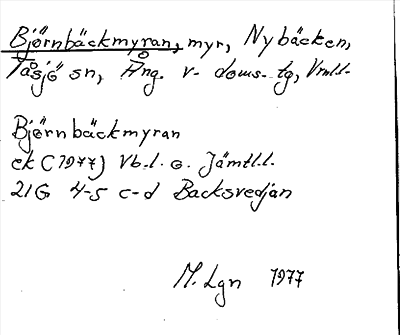 Björnbäckmyran, myr, Nybäcken,
Tåsjö sn, Ång. v. doms. tg, Vnll.
Björnbäckmyran
ek (1977) Vb.l. o. Jämtl.l.
21G 4-5 c-d Backsvedjan
M. Lgn 1977